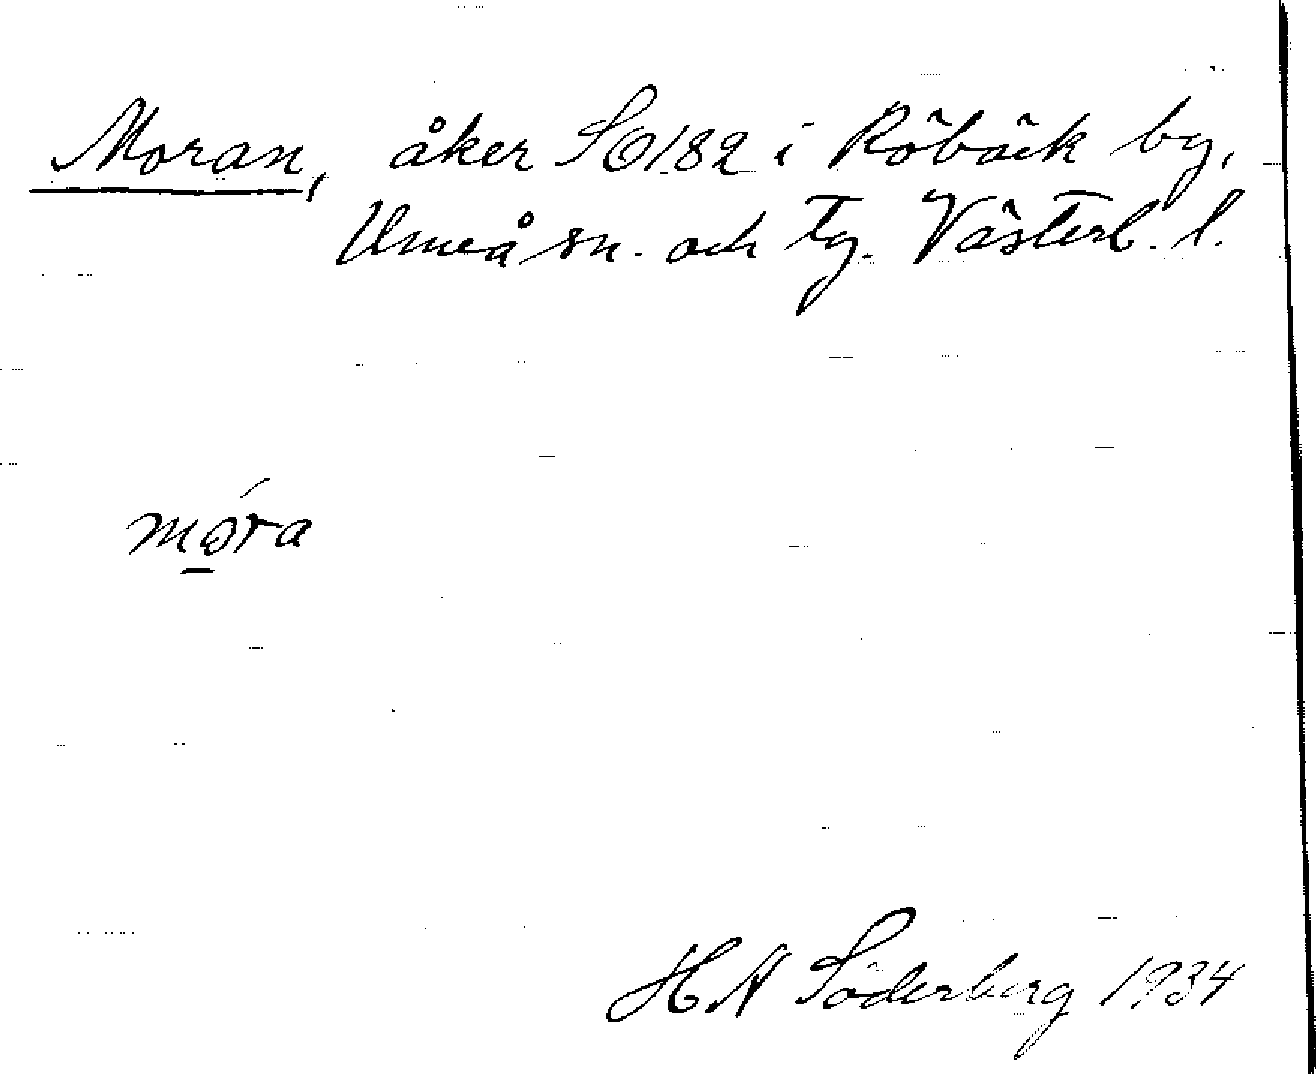 Moran, åker SO182 i Röbäck by,
Umeå sn. och tg. Västerb. l.
móra
H A Söderberg 1934